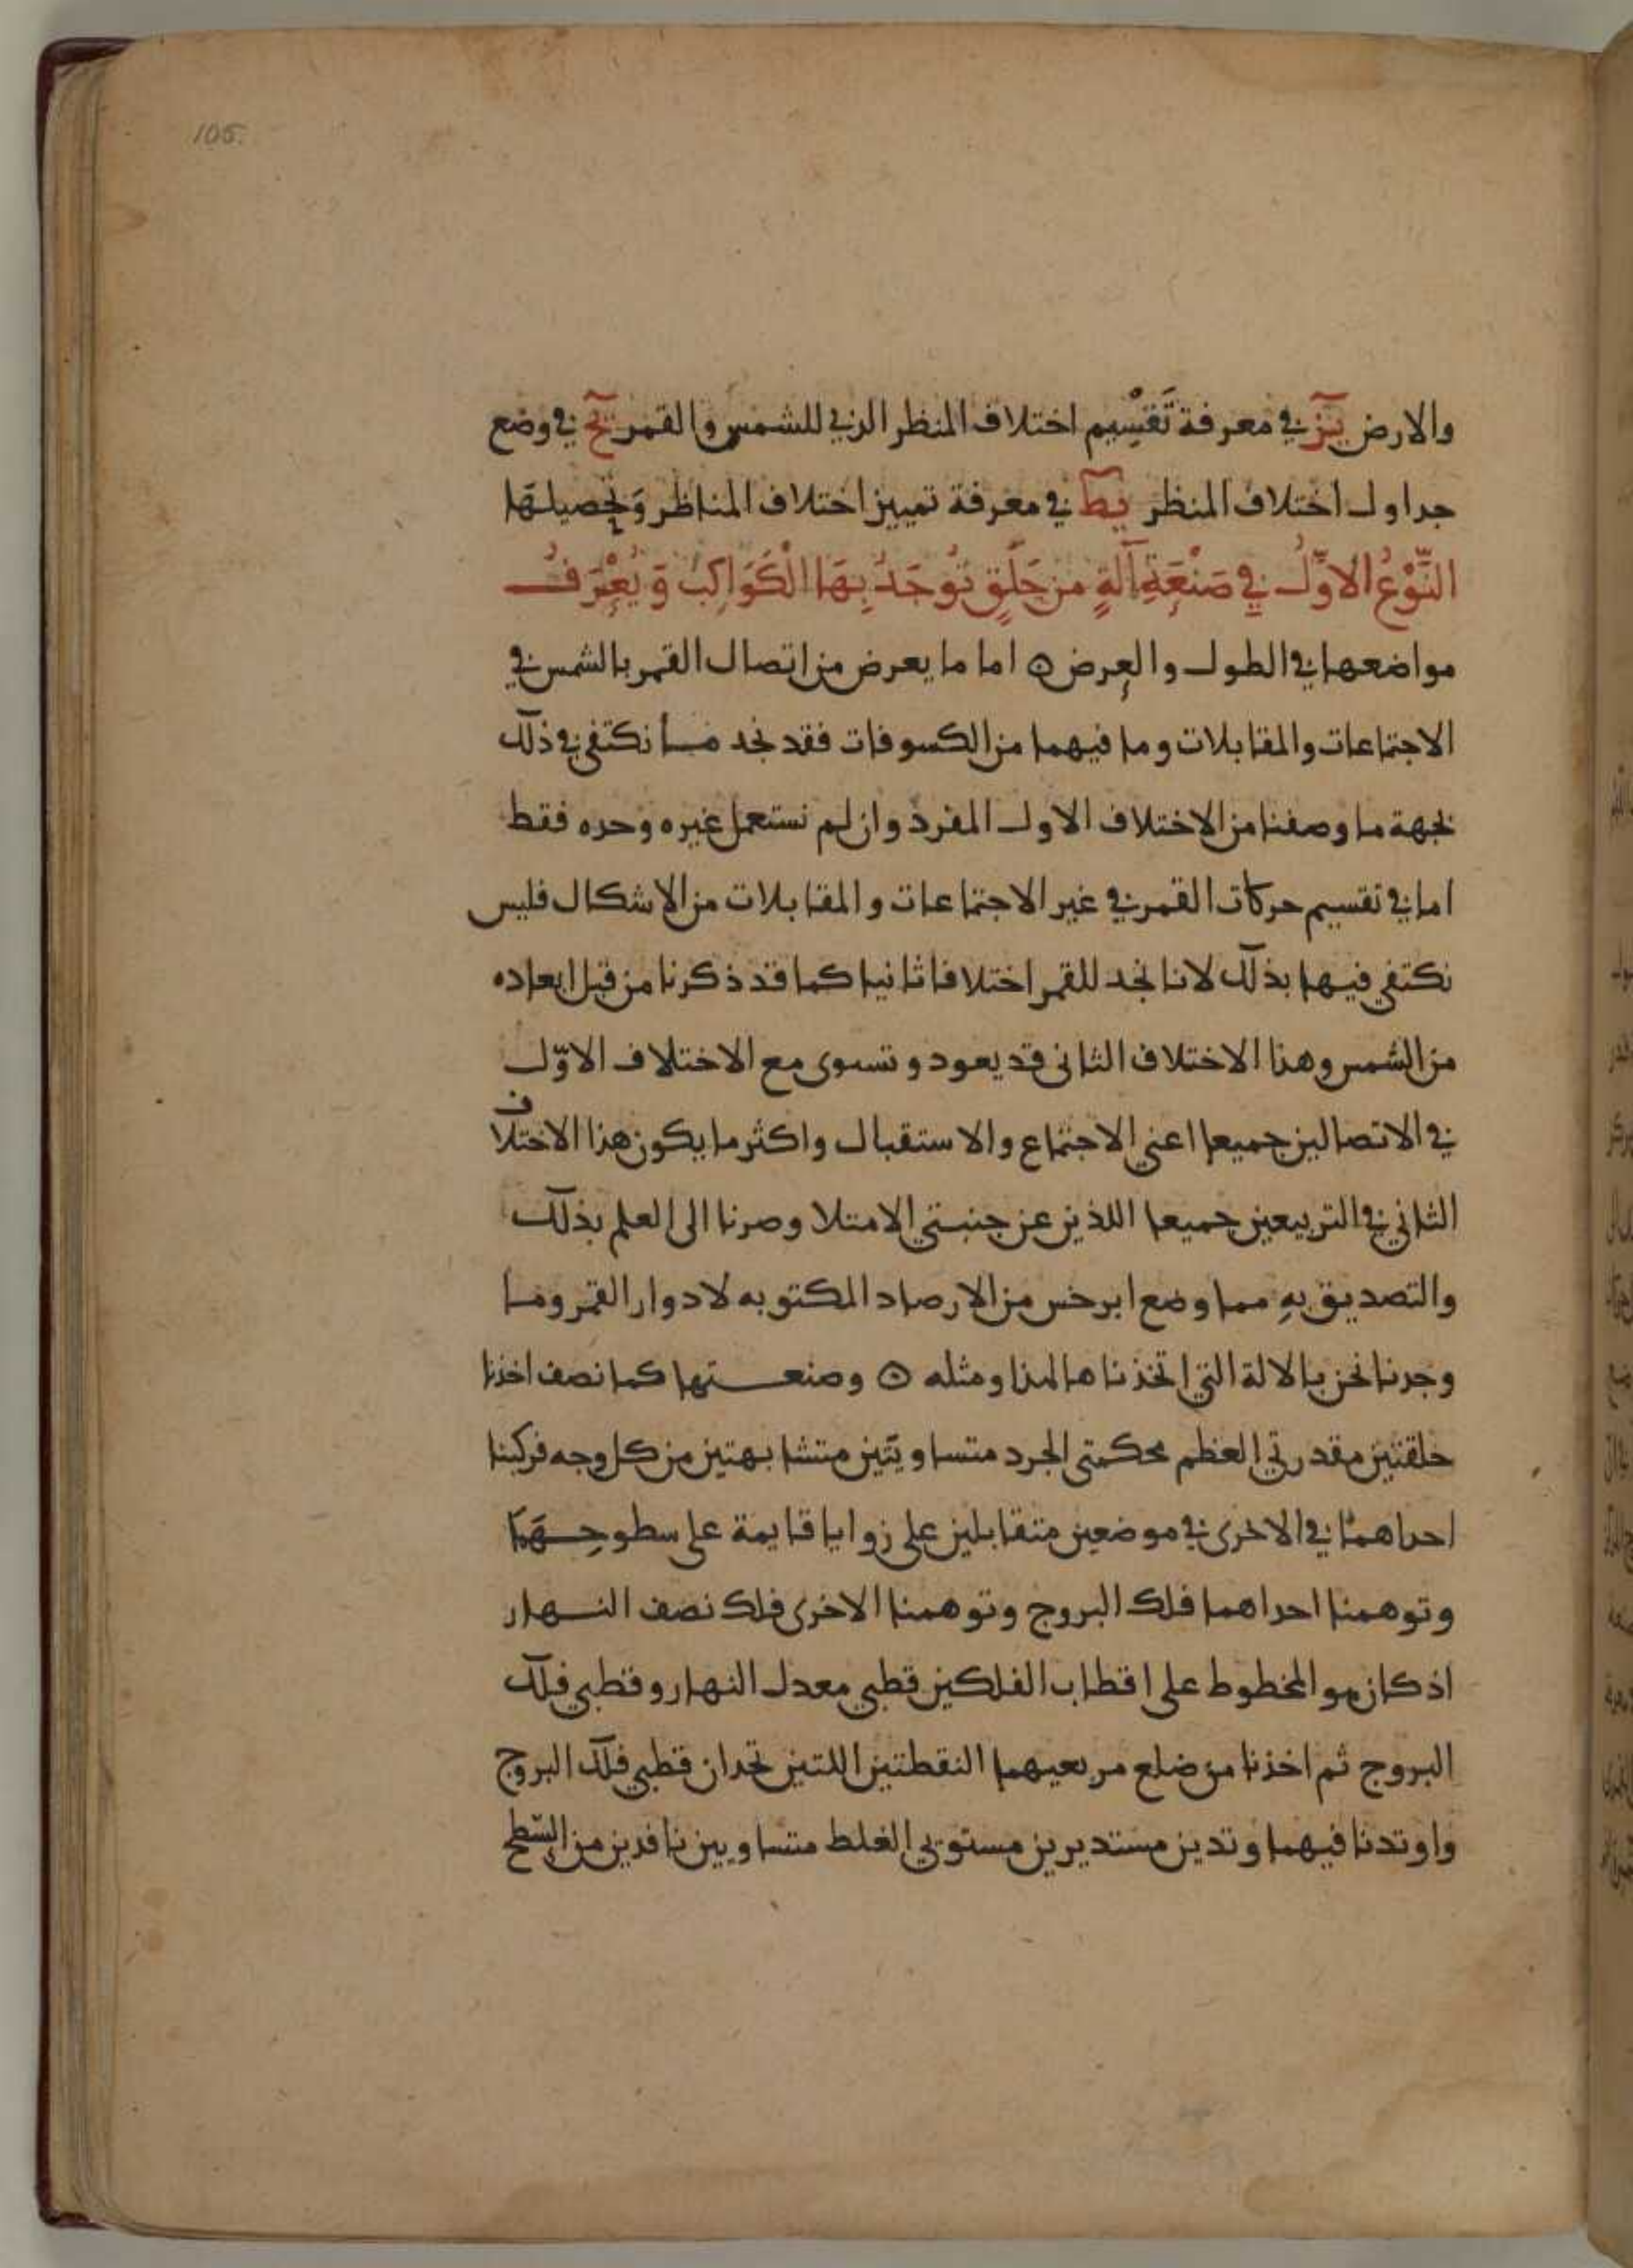 105.
والارض يز في معرفة تَقسِيم اختلاف المنظر الذي للشمس والقمر يح في وضع
جداول اختلاف المنظر يط في معرفة تمييز اختلاف المناظر وتحصيلها
النَّوْعُ الاوَّلُ في صَنْعَةِ آلَةٍ من حَلَقٍ تُوجَدُ بِهَا الْكَوَاكِبُ وَيُعْرَفُ
مواضعها في الطول والعرض ۞ اما ما يعرض من اتصال القمر بالشمس في
الاجتماعات والمقابلات وما فيهما من الكسوفات فقد نجد ما نكتفي في ذلك
بجهة ما وصفنا من الاختلاف الاول المفرد وان لم نستعمل غيره وحده فقط
اما في تقسيم حركات القمر في غير الاجتماعات والمقابلات من الاشكال فليس
نكتفي فيها بذلك لانا نجد للقمر اختلافا ثانيا كما قد ذكرنا من قبل ابعاده
من الشمس وهذا الاختلاف الثانى قد يعود وتسوى مع الاختلاف الاوّل
في الاتصالين جميعا اعني الاجتماع والاستقبال واكثر ما يكون هذا الاختلاف
الثاني في التربيعين جميعا اللذين عن جنبتي الامتلا وصرنا الى العلم بذلك
والتصديق بهِ مما وضع ابرخس من الارصاد المكتوبه لادوار القمر وما
وجدنا نحن بالالة التي اتخذناها لهذا ومثله ۞ وصنعتها كما نصف اخذنا
حلقتين مقدرتي العظم محكمتى الجرد متساويتين متشابهتين من كل وجه فركبنا
احداهما في الاخرى في موضعين متقابلين على زوايا قايمة على سطوحِهَما
وتوهمنا احداهما فلك البروج وتوهمنا الاخرى فلك نصف النهار
اذ كان هو المخطوط على اقطاب الفلكين قطبي معدل النهار وقطبي فلك
البروج ثم اخذنا من ضلع مربعيهما النقطتين اللتين تحدان قطبي فلك البروج
واوتدنا فيهما وتدين مستديرين مستويي الغلظ متساويين نافذين من السّطح